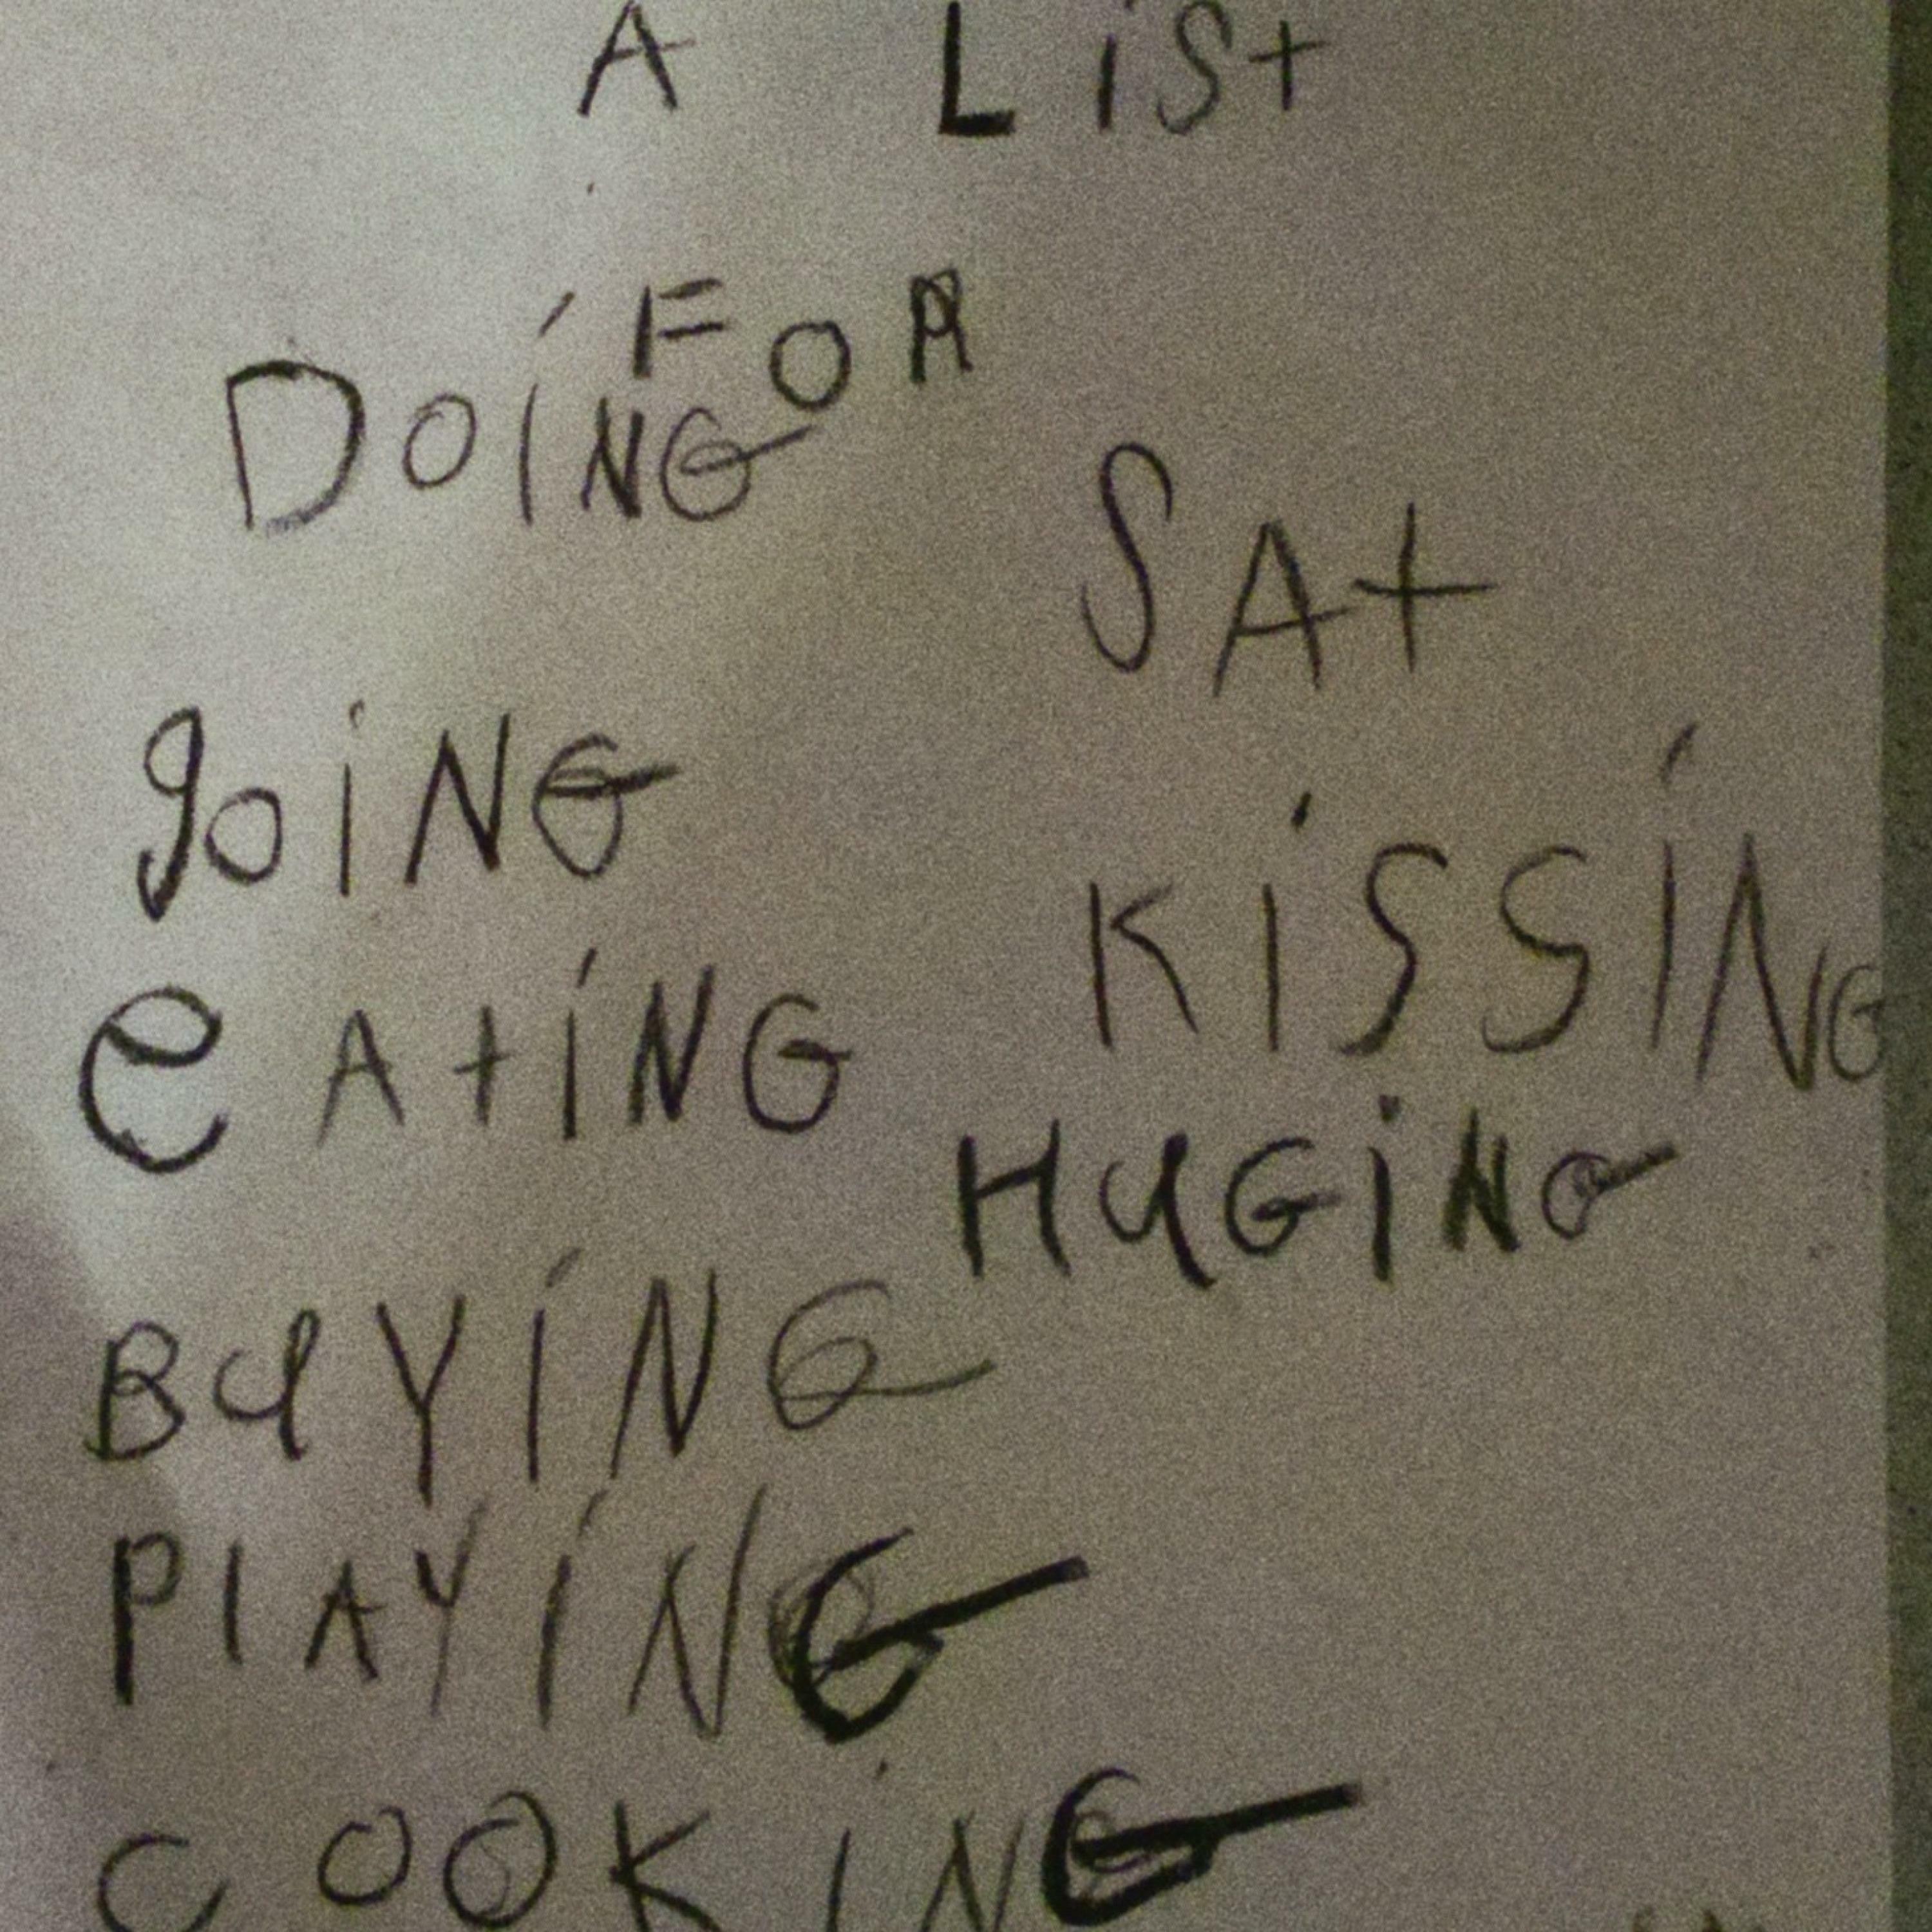 A LiSt
FOR
DOiNG
SAt
goiNG
KiSSiNG
eAtiNG
HUGiNG
BUYiNG
PlAYiNG
COOKiNG